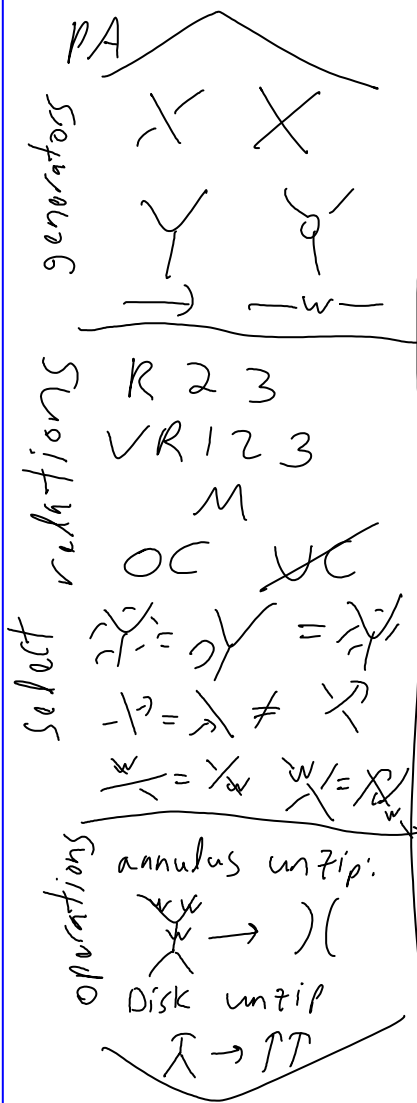 PA
generators
w
select relations
R 2 3
VR 1 2 3
M
OC UC
= =
= ≠
w = w w = w
operations
annulus unzip:
w w
w →
Disk unzip
→ ↑↑